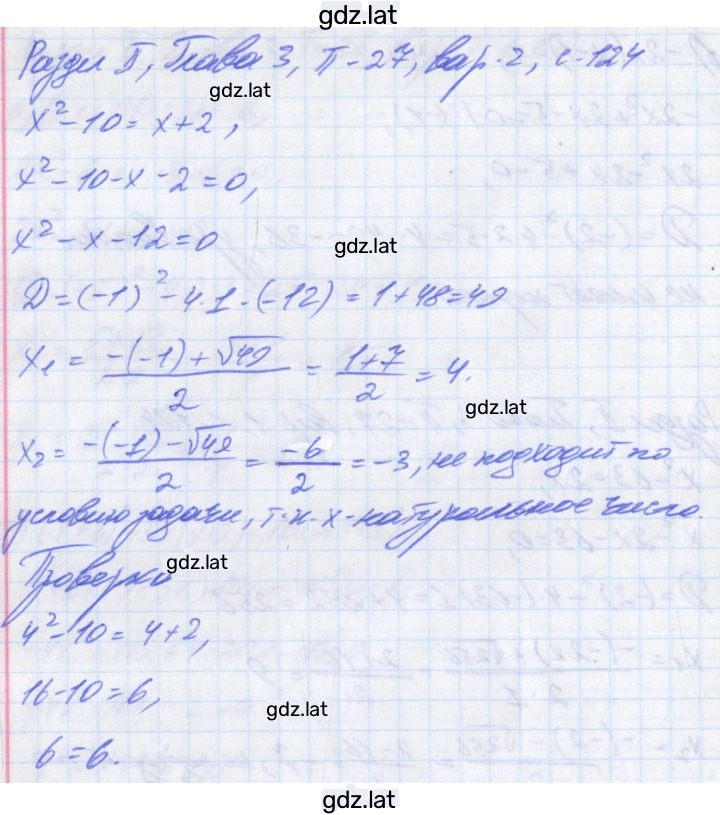 gdz.lat
Раздел П, Глава 3, П-27, вар. 2, с-124
gdz.lat
x²-10=x+2,
x²-10-x-2=0,
x²-x-12=0
gdz.lat
D=(-1)²-4·1·(-12)=1+48=49
x₁=(-(-1)+√49)/2=(1+7)/2=4.
gdz.lat
x₂=(-(-1)-√49)/2=-6/2=-3, не подходит по
условию задачи, т.к. x-натуральное число.
gdz.lat
Проверка
4²-10=4+2,
16-10=6,
gdz.lat
6=6.
gdz.lat